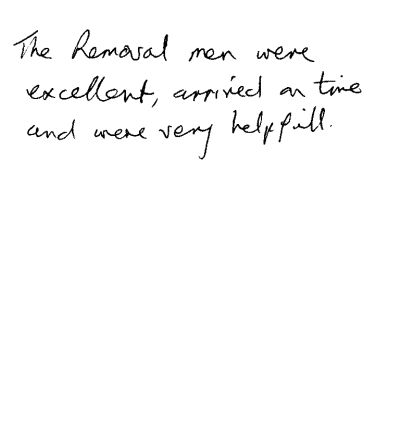 The Removal men were
excellent, arrived on time
and were very helpfull.